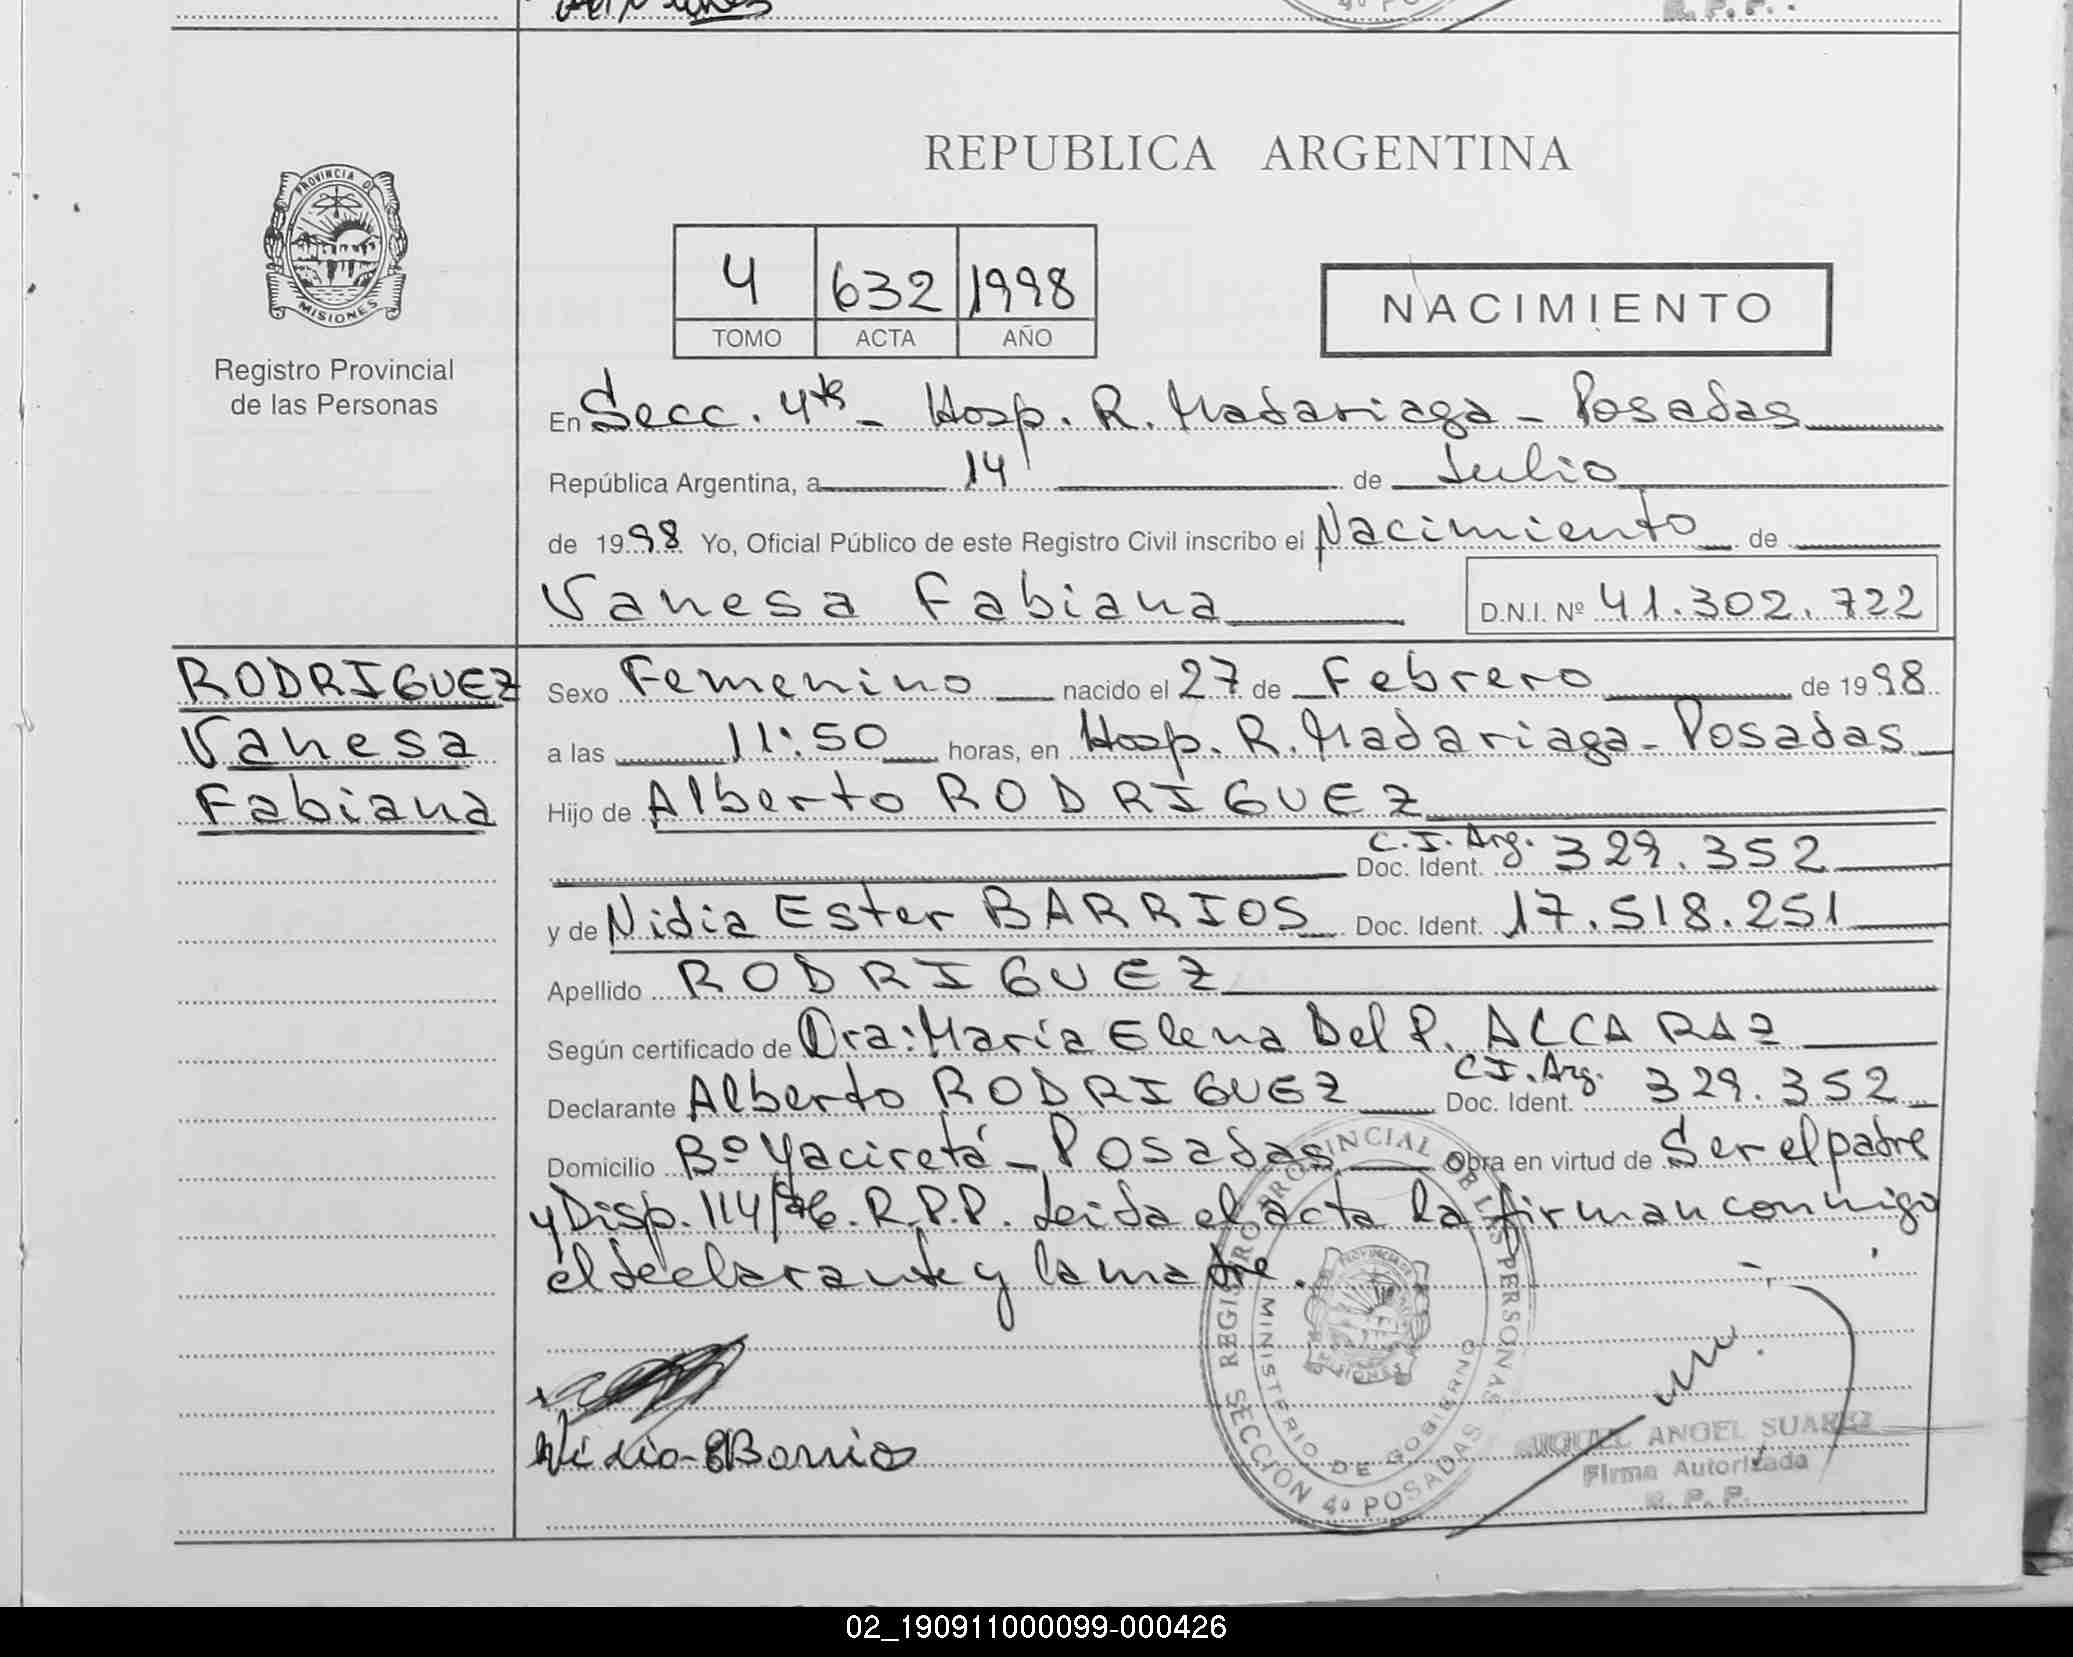 REPUBLICA ARGENTINA
PROVINCIA DE
MISIONES
4 632 1998
TOMO ACTA AÑO
NACIMIENTO
Registro Provincial
de las Personas
En Secc. 4ta - Hosp. R. Madariaga - Posadas
República Argentina, a 14 de Julio
de 1998 Yo, Oficial Público de este Registro Civil inscribo el Nacimiento de
Vanesa Fabiana D.N.I. Nº 41.302.722
RODRIGUEZ
Vanesa
Fabiana
Sexo Femenino nacido el 27 de Febrero de 1998
a las 11:50 horas, en Hosp. R. Madariaga - Posadas
Hijo de Alberto RODRIGUEZ
C.I. Arg.
Doc. Ident. 329.352
y de Nidia Ester BARRIOS Doc. Ident. 17.518.251
Apellido RODRIGUEZ
Según certificado de Dra: María Elena Del P. ALCARAZ
C.I. Arg.
Declarante Alberto RODRIGUEZ Doc. Ident. 329.352
Domicilio Bº Yaciretá - Posadas Obra en virtud de Ser el padre
y Disp. 114/96. R.P.P. Leida el acta la firman conmigo
el declarante y la madre.
REGISTRO PROVINCIAL DE LAS PERSONAS
MINISTERIO DE GOBIERNO
SECCION 4º POSADAS
Nidia E Barrios
MIGUEL ANGEL SUAREZ
Firma Autorizada
R. P. P.
02_190911000099-000426